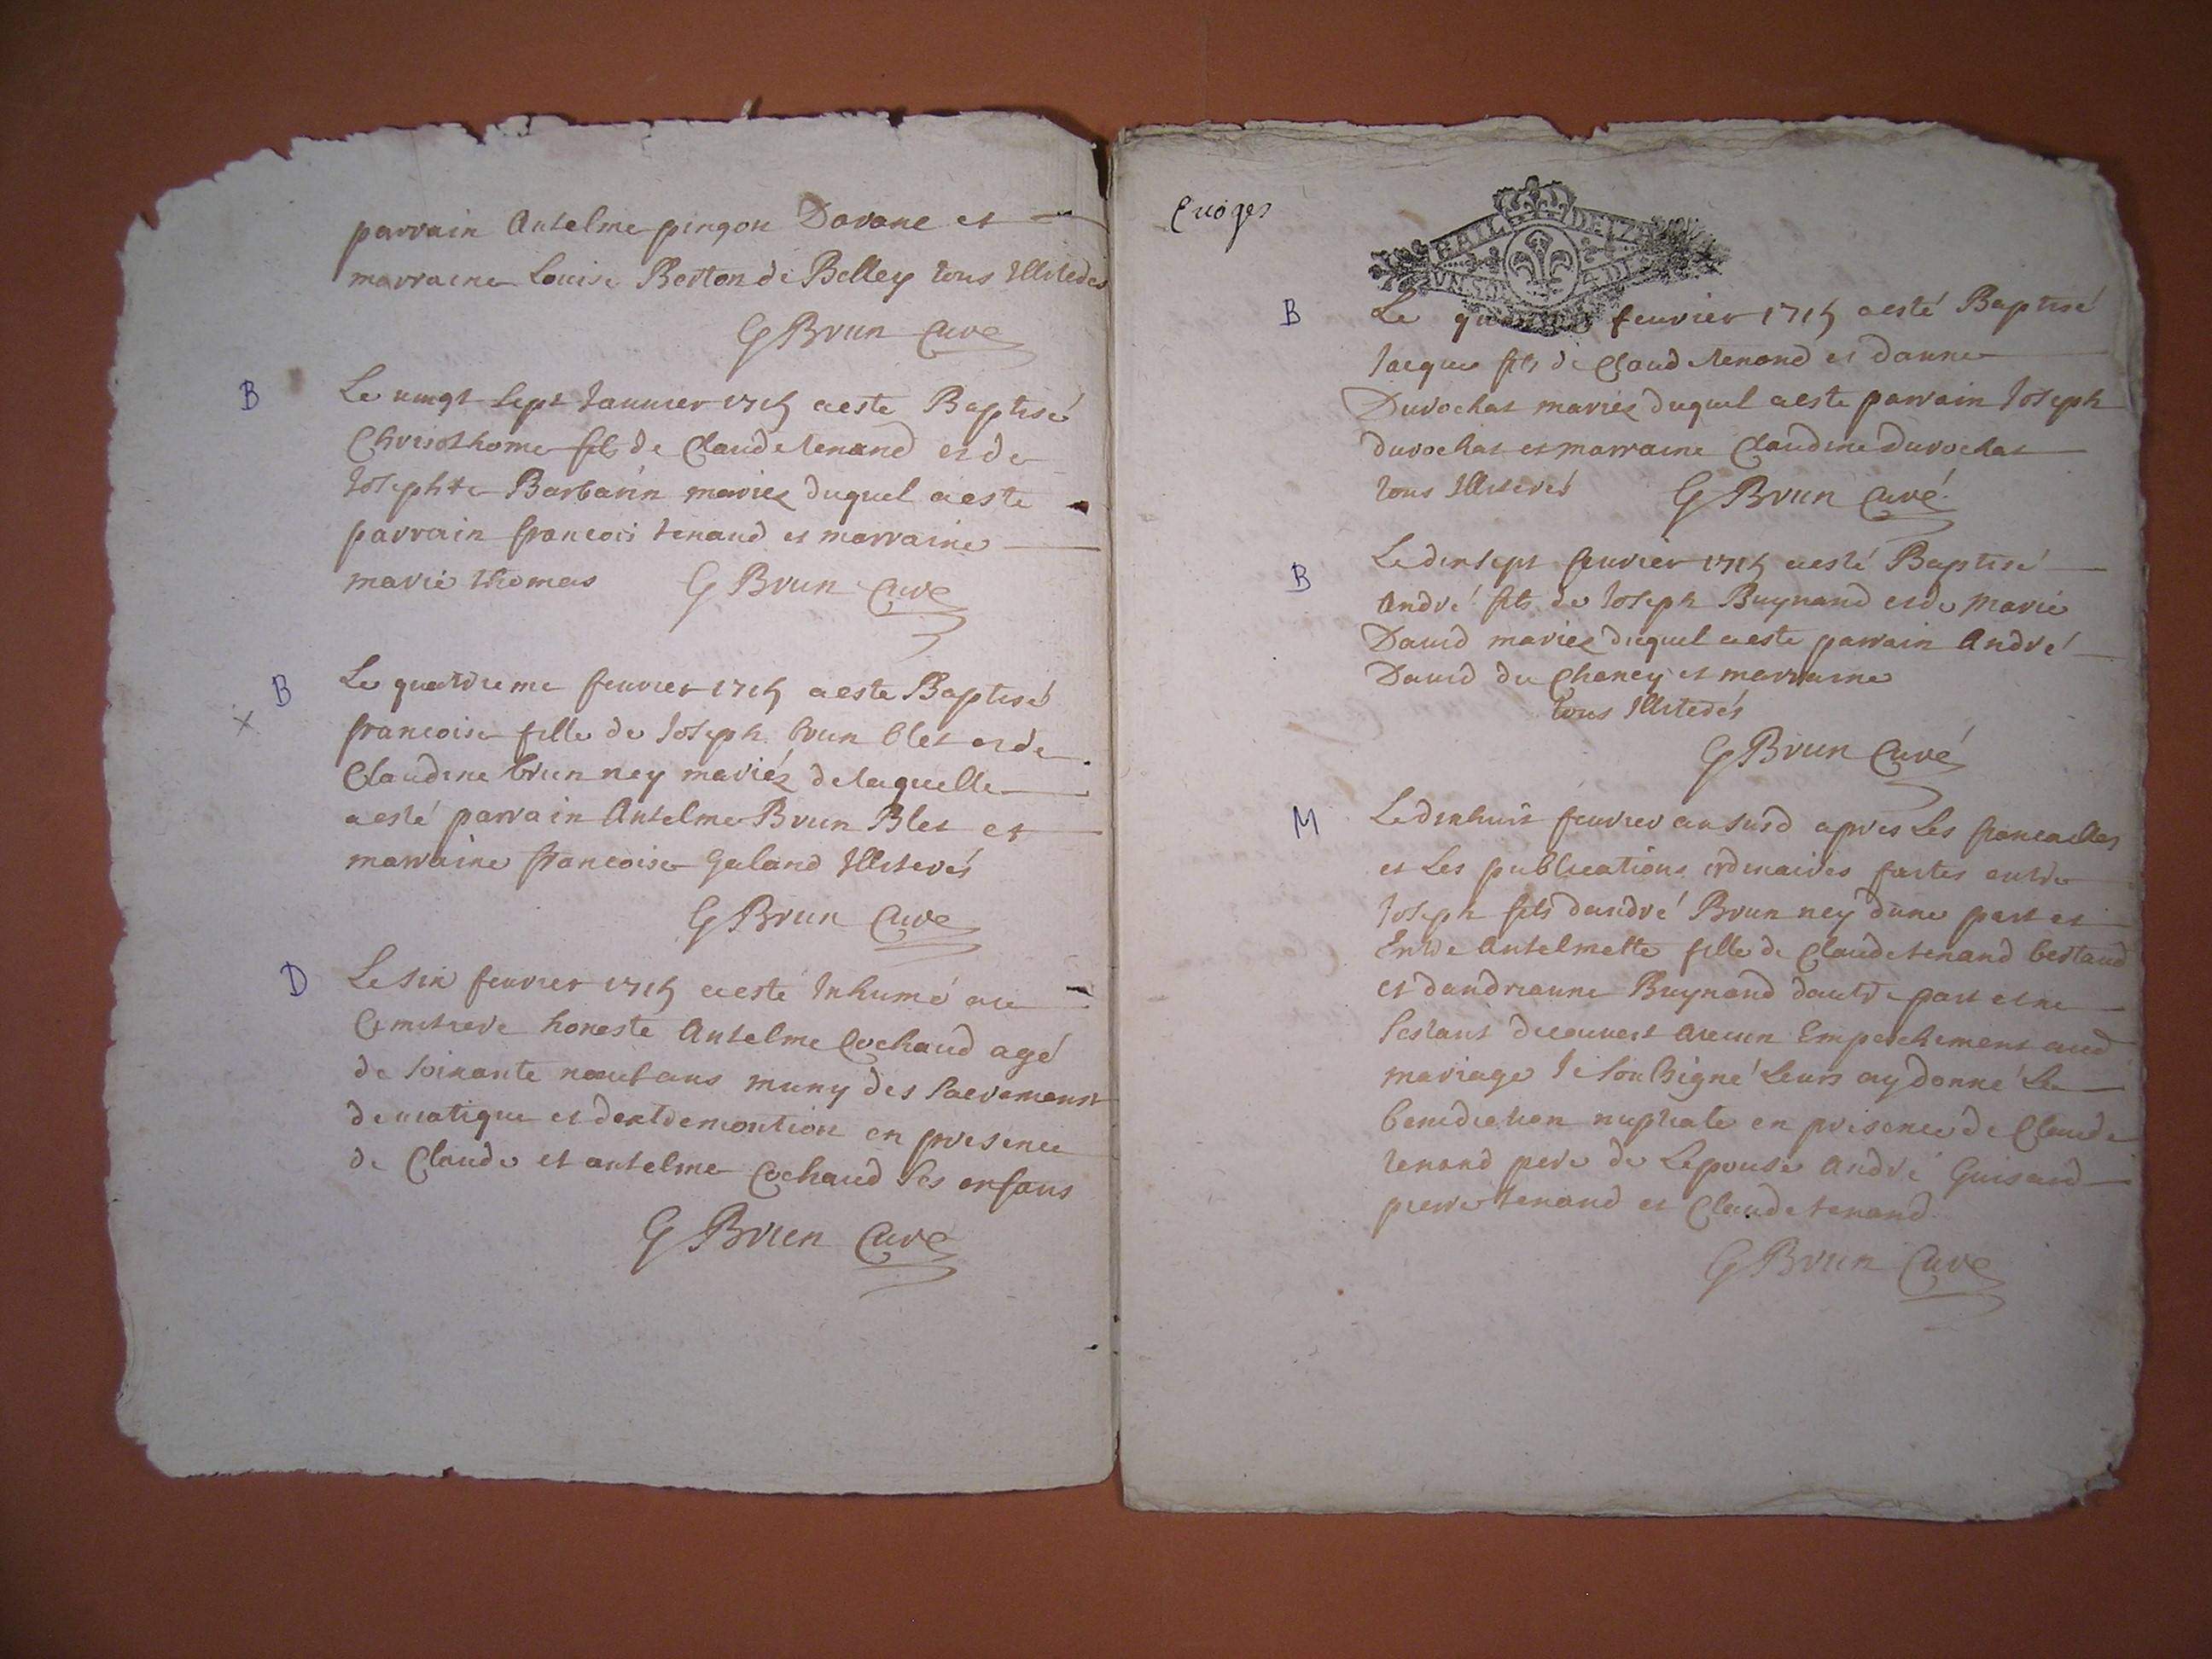 parrain Antelme pingon Davane et
marraine Louise Berton de Belley tous Illiteres
G Brun Curé
B
Le vingt sept Januier 1715 aeste Baptisé
Chrisosthome fils de Claude tenand et de
Josephte Barbarin mariez duquel a este
parrain francois tenand et marraine
marie thomas G Brun Curé
B
Le quatrieme feurier 1715 a este Baptisé
francoise fille de Joseph brun blet et de
Claudine brun ney mariéz de laquelle
a esté parrain Antelme Brun Blet et
marraine francoise Galand Illiterés
G Brun Curé
D
Le six feurier 1715 a esté Inhumé au
Cimitiere honeste Antelme Cochaud agé
de soixante neuf ans muny des Sacremens
de uiatique et dextremontion en presence
de Claude et antelme Cochaud ses enfans
G Brun Curé
Cuoges
GENERAL
VN SOL
B
Le feurier 1715 a esté Baptisé
Jacque fils de Claud tenand et danne
Durochat mariez duquel a este parrain Joseph
durochat et marraine Claudine durochat
tous Illiterés G Brun Curé
B
Le dix sept feurier 1715 a esté Baptisé
André fils de Joseph Buynand et de marie
Dauid mariez duquel a este parrain André
Dauid du Chaney et marraine
tous Illiterés
G Brun Curé
M
Le dix huit feurier an susd apres Les fiancailles
et Les publications ordinaires faites entre
Joseph fils dandré Brun ney dune part et
Entre Antelmette fille de Claude tenand bertand
et dandreanne Buynand dautre part et ne
sestant decouuert aucun Empeschement aud
mariage Je soussigné Leurs ay donné La
benediction nuptiale en presence de Claude
tenand pere de Lepouse André Guisard
pierre tenand et Claude tenand
G Brun Curé